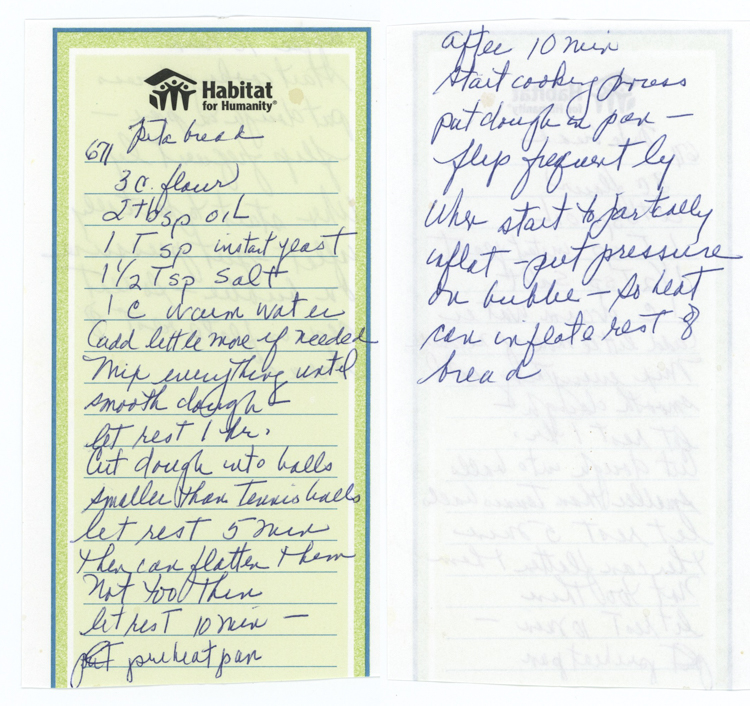 Habitat
for Humanity®
Pita bread
671
3 c. flour
2 tbsp oil
1 Tsp instant yeast
1 1/2 Tsp Salt
1 C warm water
(add little more if needed
Mix everything until
smooth dough -
let rest 1 hr.
Cut dough into balls
smaller than tennis balls
let rest 5 min
then can flatten them
Not too thin
let rest 10 min —
preheat pan
after 10 min
start cooking process
put dough in pan —
flip frequently
When start to partially
inflat - put pressure
on bubble - so heat
can inflate rest of
bread